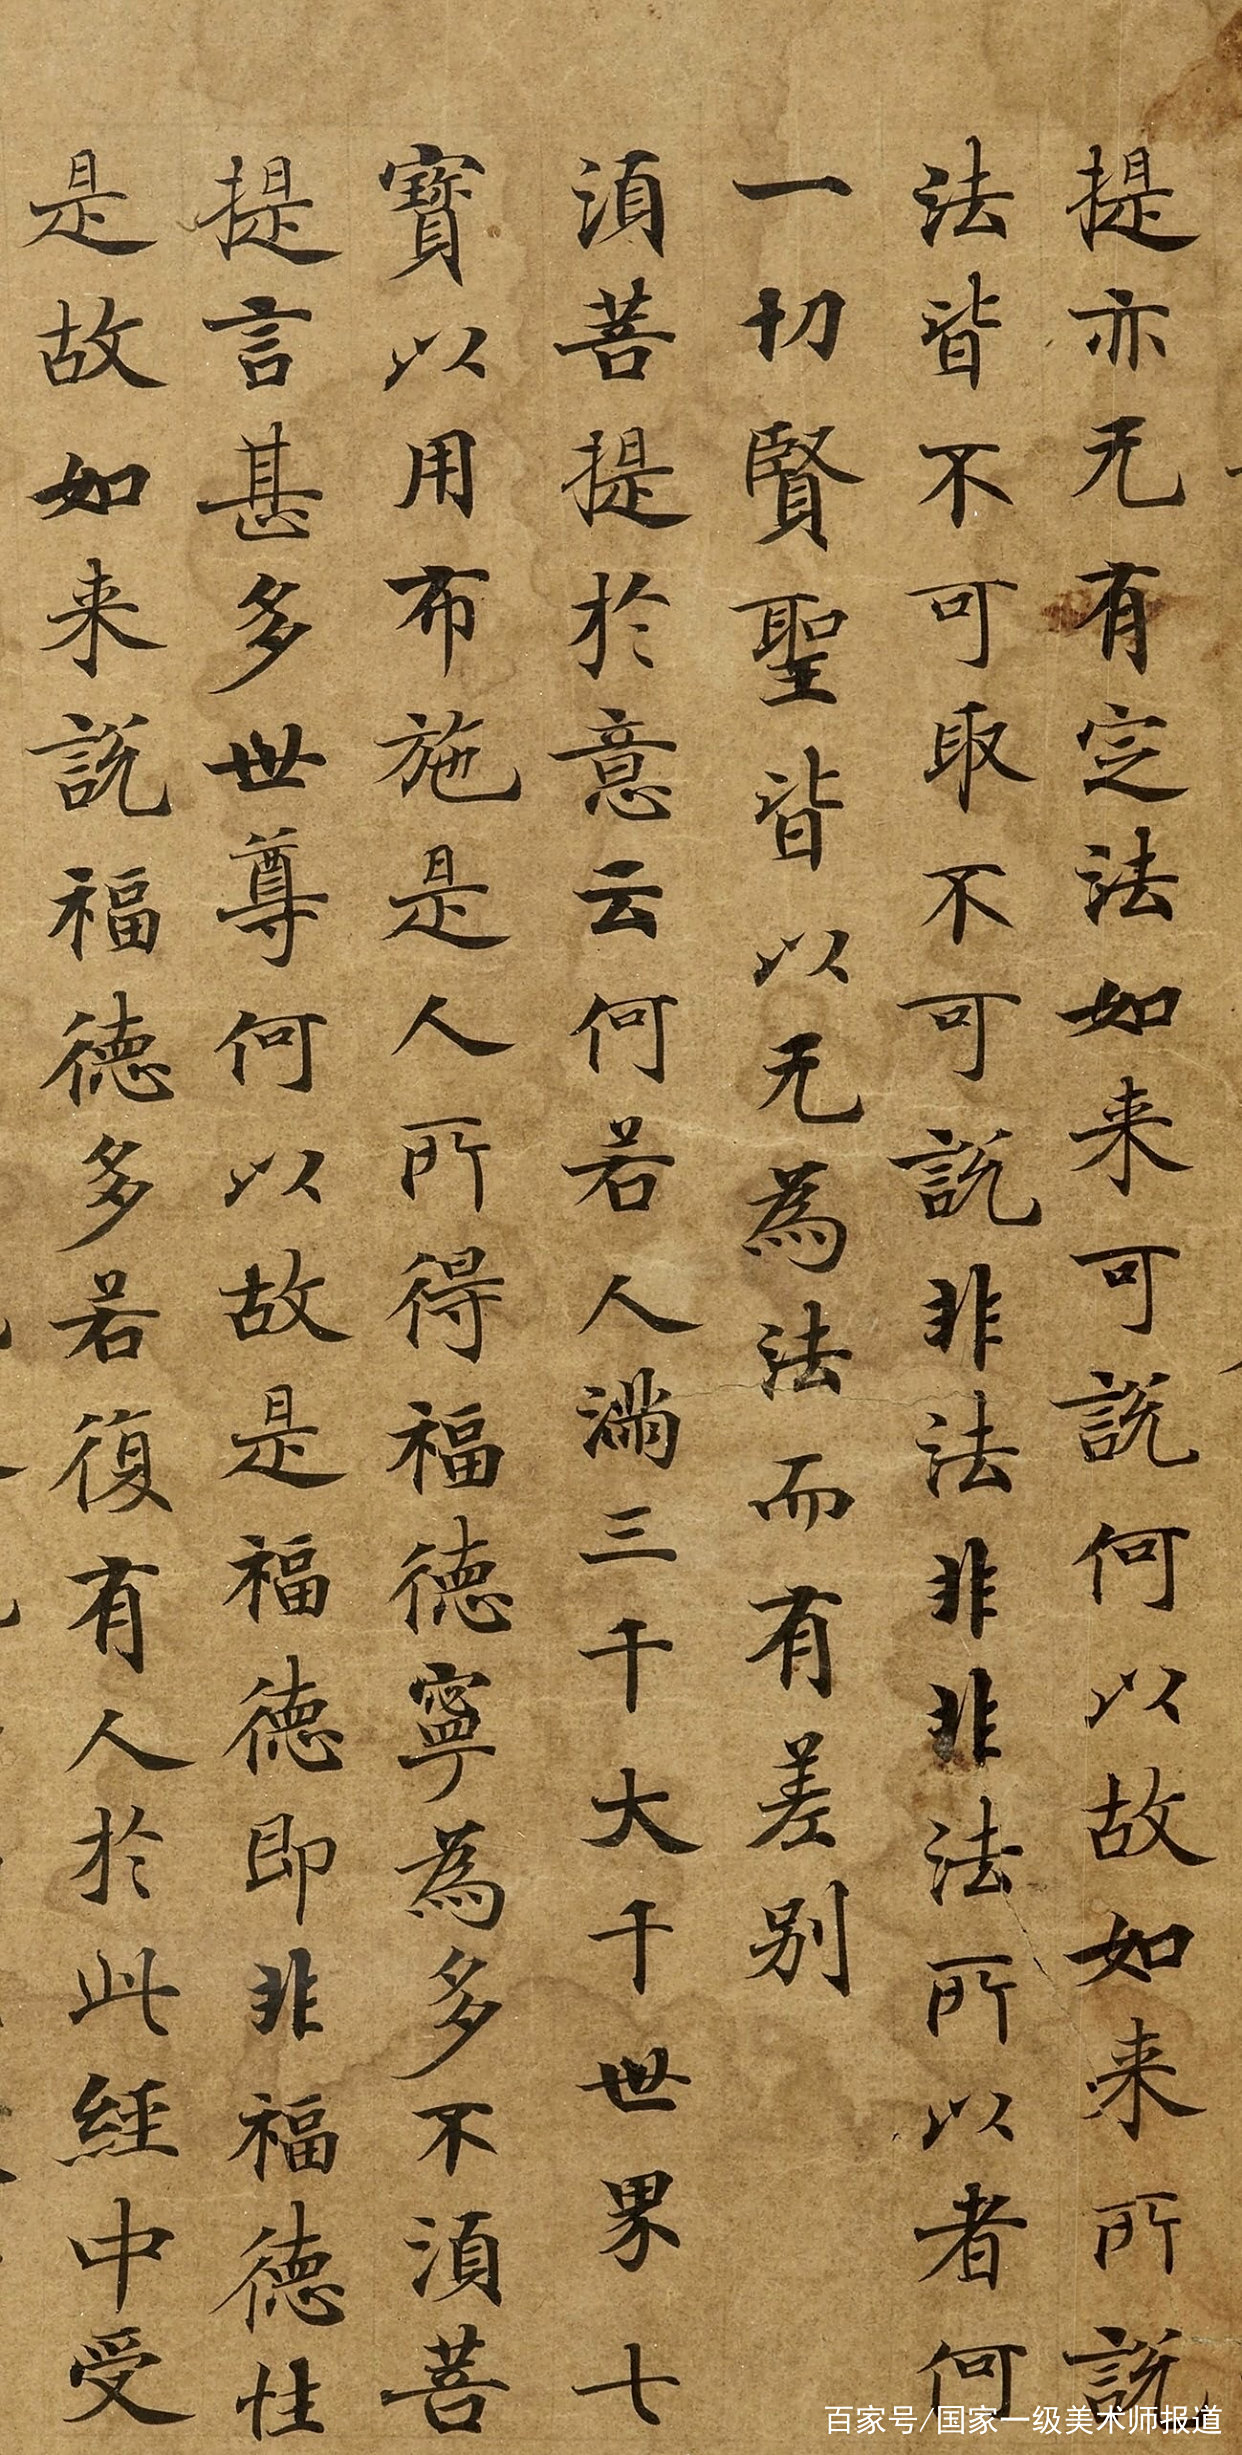 提亦无有定法如来可說何以故如来所說
法皆不可取不可說非法非非法所以者何
一切賢聖皆以无為法而有差别
須菩提於意云何若人滿三千大千世界七
寶以用布施是人所得福德寧為多不須菩
提言甚多世尊何以故是福德即非福德性
是故如来說福德多若復有人於此經中受
百家号/国家一级美术师报道